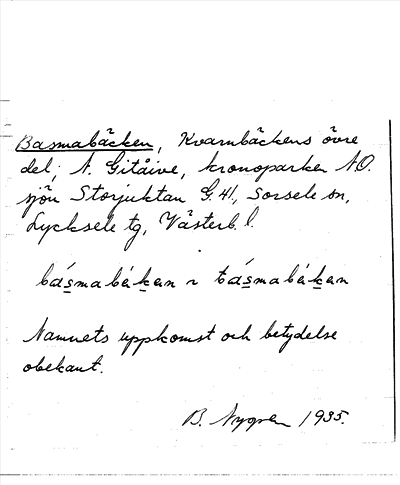 Basmabäcken, Kvarnbäckens övre
del, N. Gitåive, kronoparken N.O.
sjön Storjuktan G. 41, Sorsele sn,
Lycksele tg, Västerb. l.
básmabákan ~ tásmabákan
Namnets uppkomst och betydelse
obekant.
B. Nygren 1935.